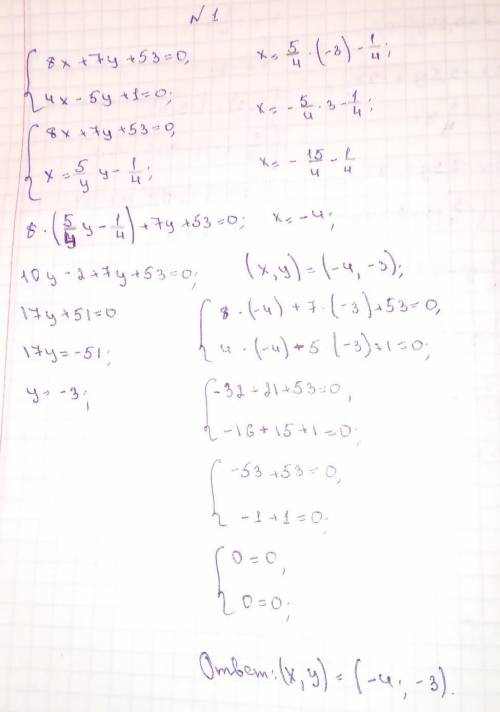 № 1
{ 8x + 7y + 53 = 0,
4x - 5y + 1 = 0;
{ 8x + 7y + 53 = 0,
x = 5/y y - 1/4;
8 · (5/4 y - 1/4) + 7y + 53 = 0;
10y - 2 + 7y + 53 = 0;
17y + 51 = 0
17y = -51;
y = -3;
x = 5/4 · (-3) - 1/4;
x = - 5/4 · 3 - 1/4;
x = - 15/4 - 1/4
x = -4;
(x, y) = (-4, -3);
{ 8 · (-4) + 7 · (-3) + 53 = 0,
4 · (-4) - 5 · (-3) + 1 = 0;
{ -32 - 21 + 53 = 0,
-16 + 15 + 1 = 0;
{ -53 + 53 = 0,
-1 + 1 = 0;
{ 0 = 0,
0 = 0;
Ответ: (x, y) = (-4; -3).